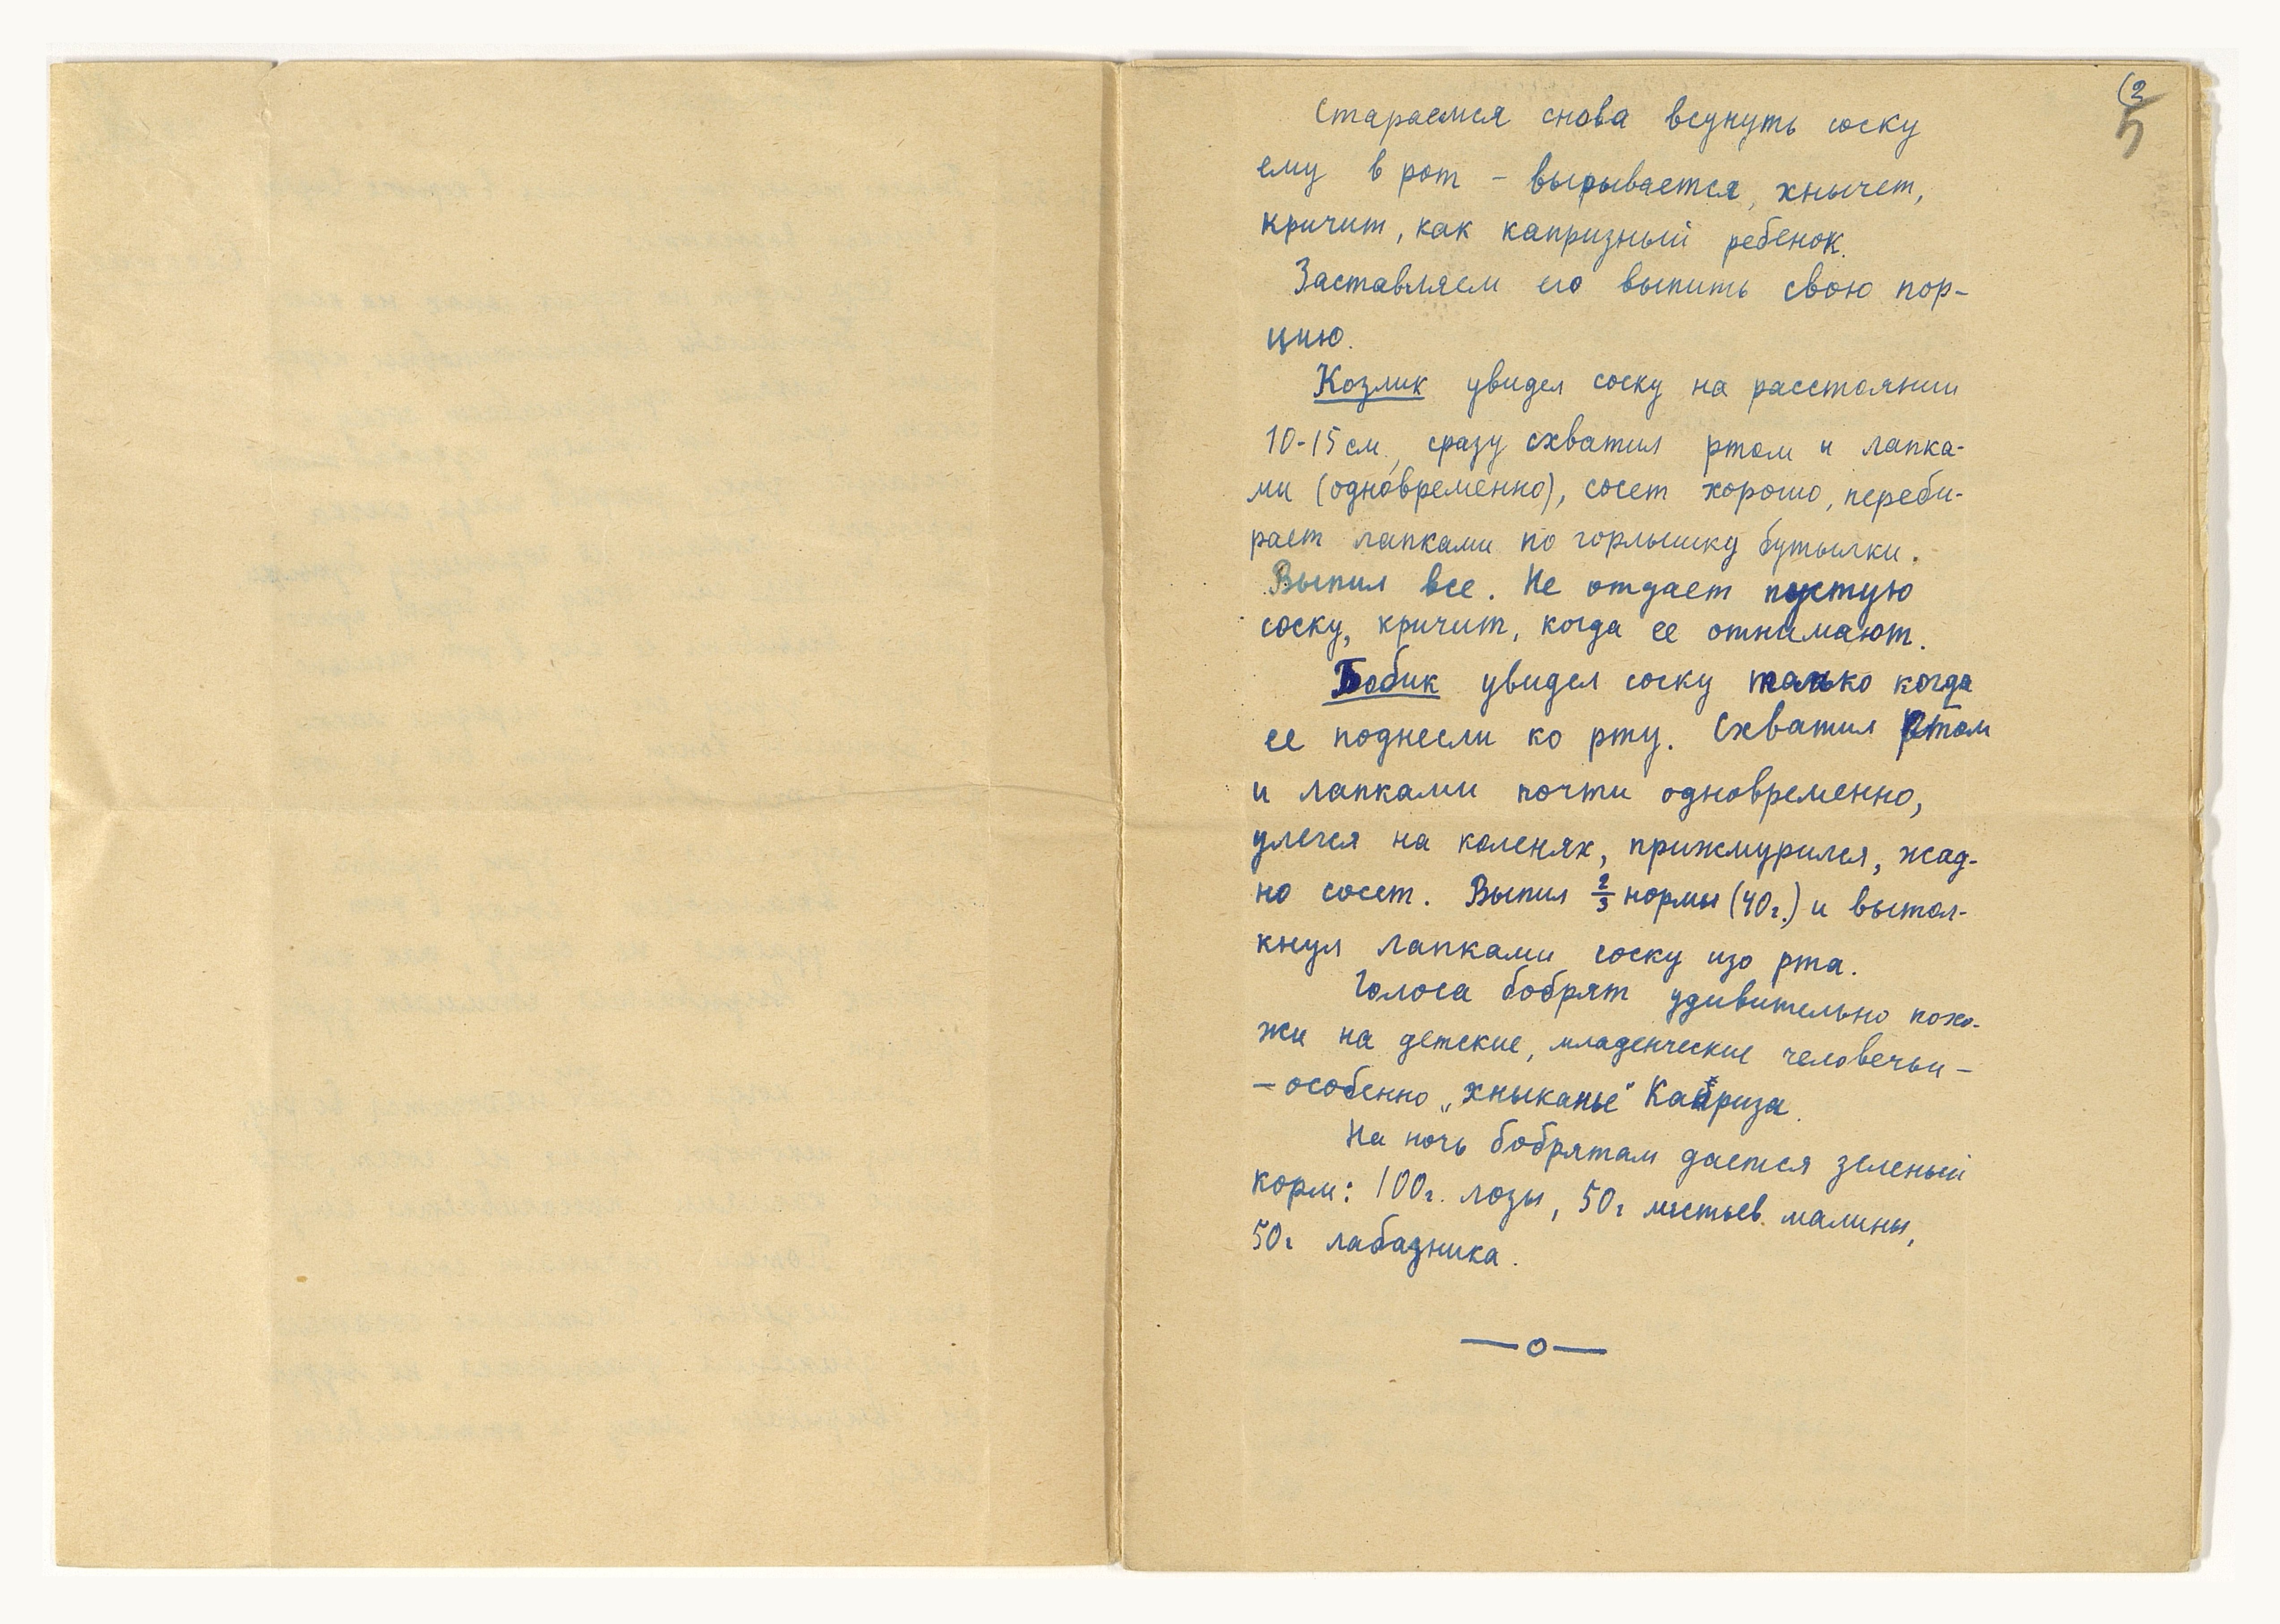 (2
5
Стараемся снова всунуть соску
ему в рот – вырывается, хнычет,
кричит, как капризный ребенок.
Заставляем его выпить свою пор-
цию.
Козлик увидел соску на расстоянии
10-15 см., сразу схватил ртом и лапка-
ми (одновременно), сосет хорошо, переби-
рает лапками по горлышку бутылки.
Выпил все. Не отдает пустую
соску, кричит, когда ее отнимают.
Бобик увидел соску только когда
ее поднесли ко рту. Схватил ртом
и лапками почти одновременно,
улегся на коленях, прижмурился, жад-
но сосет. Выпил 2/3 нормы (40г.) и вытол-
кнул лапками соску изо рта.
Голоса бобрят удивительно похо-
жи на детские, младенческие человечьи –
– особенно „хныканье" Каприза.
На ночь бобрятам дается зеленый
корм: 100г. лозы, 50г листьев малины,
50г лабазника.
—о—